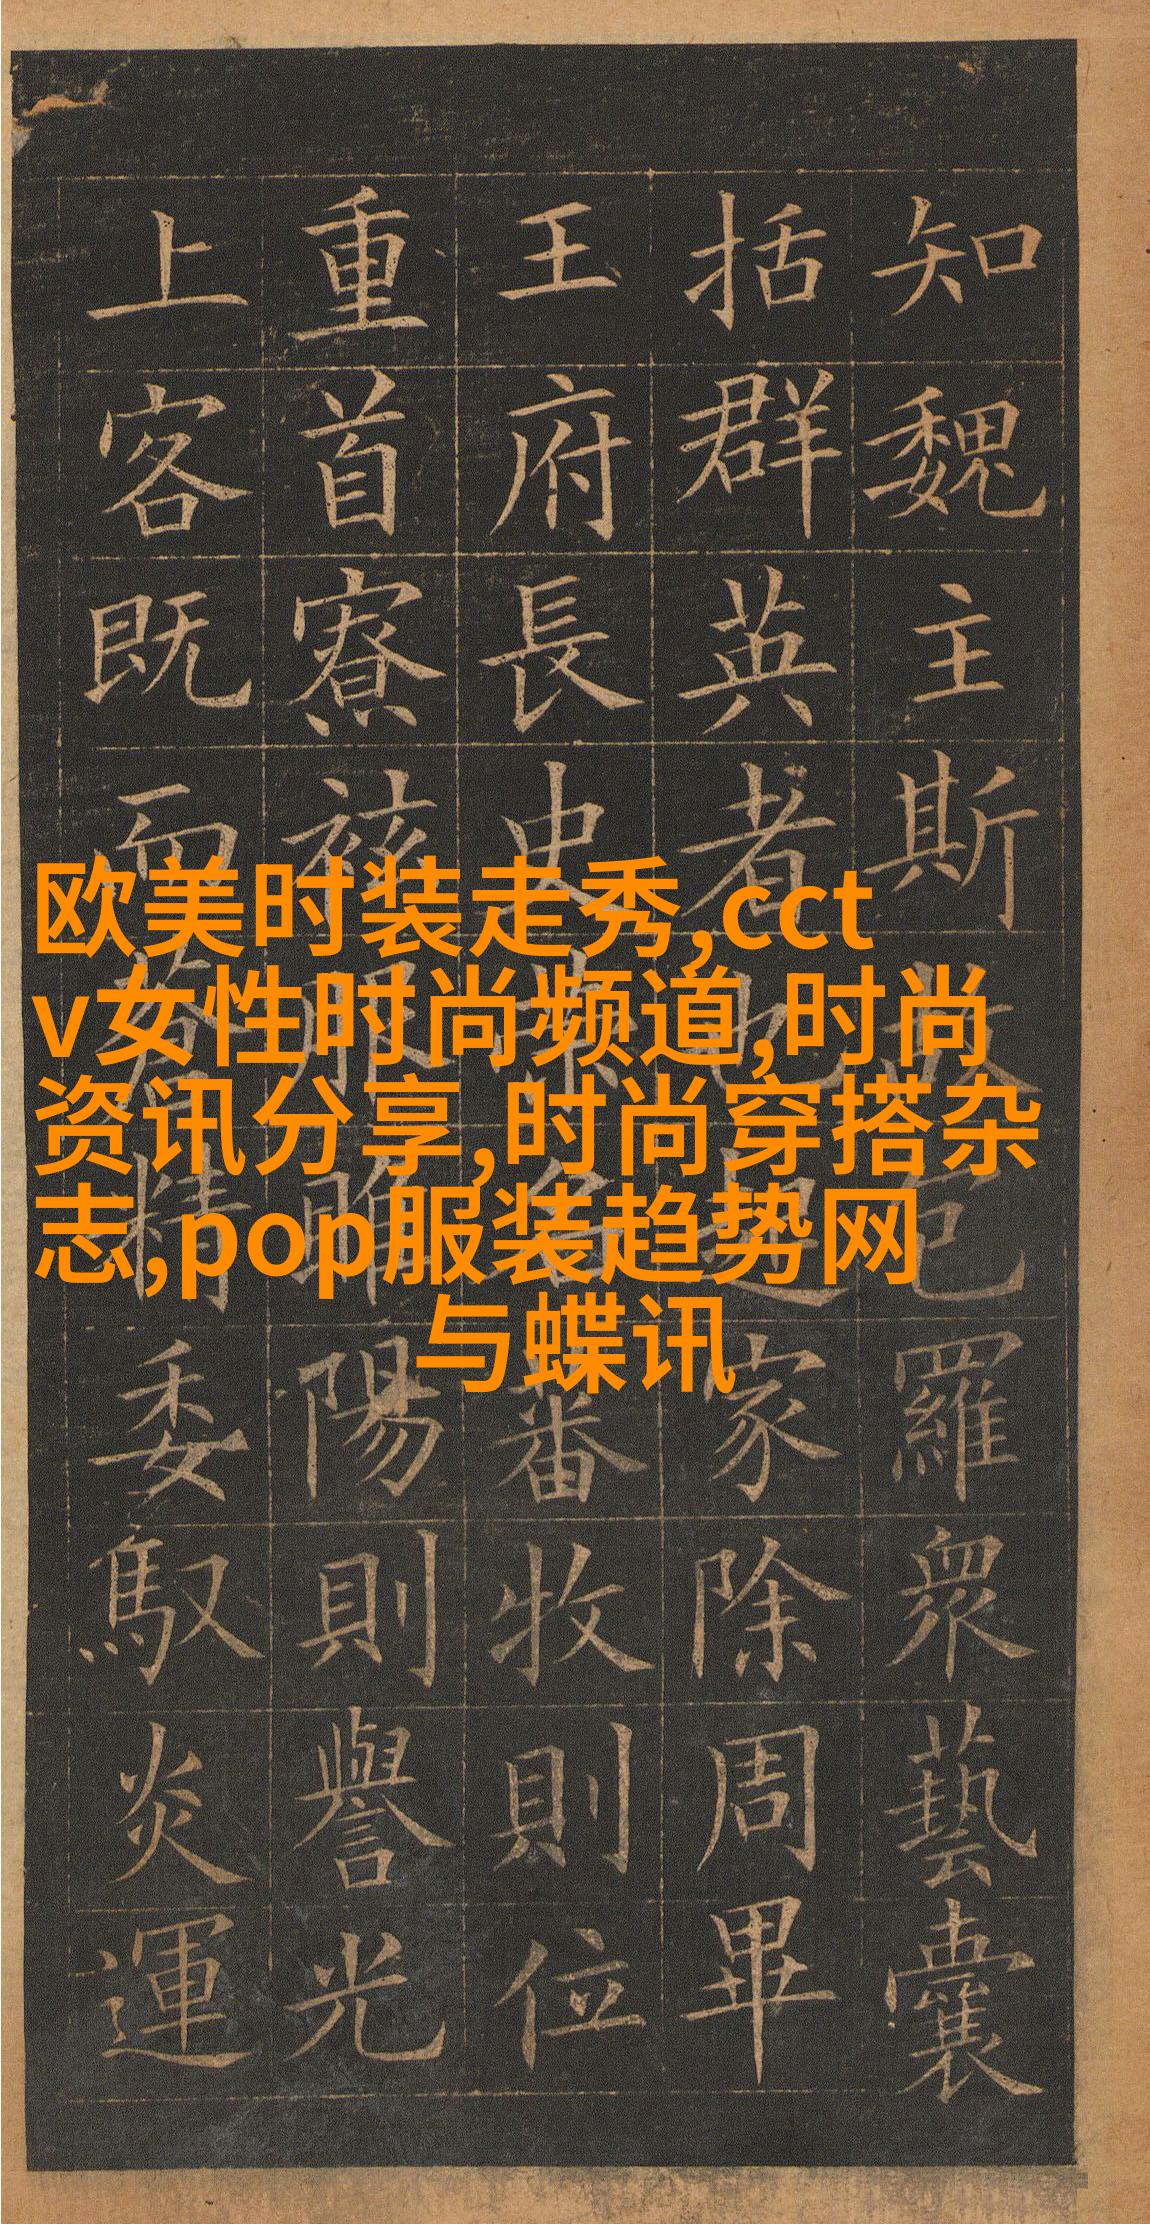 知魏主斯故包羅衆藝囊
括群英者也起家除周畢
王府長史榮名蕃牧則位
重首寮祗服睢陽則譽光
上客既而蒼精委馭炎運
欧美时装走秀,cct
v女性时尚频道,时尚
资讯分享,时尚穿搭杂
志,pop服装趋势网
与蝶讯